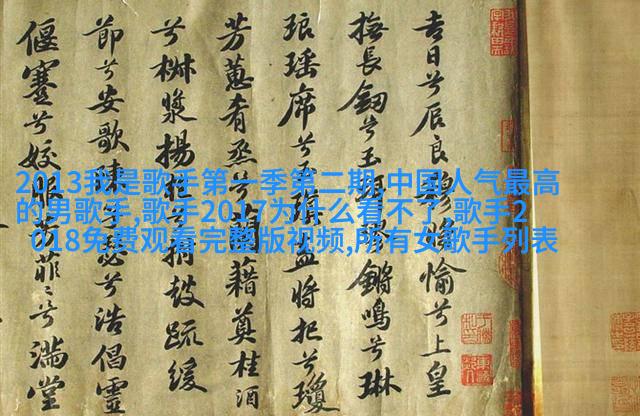 2013我是歌手第一季第二期,中国人气最高
的男歌手,歌手2017为什么看不了,歌手2
018免费观看完整版视频,所有女歌手列表
吉日兮辰良穆將愉兮上皇
撫長釼兮玉珥鏘鳴兮琳
琅瑤席兮瑱盍將把兮瓊
芳蕙肴烝兮蘭藉奠桂酒
兮椒漿揚枹兮拊鼓疏緩
節兮安歌陳瑟兮浩倡靈
偃蹇兮姣服芳菲菲兮滿堂